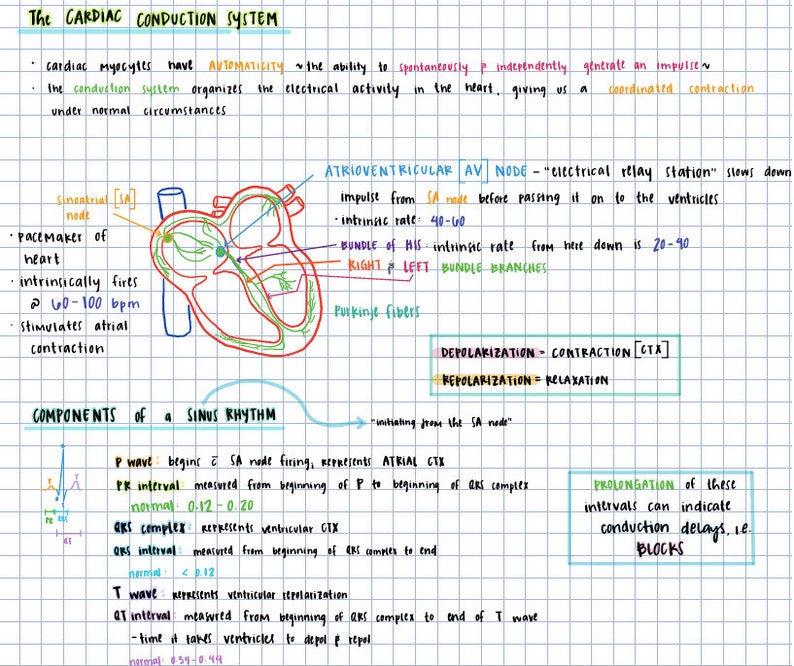 The CARDIAC CONDUCTION SYSTEM
· cardiac myocytes have AUTOMATICITY ~ the ability to spontaneously & independently generate an impulse ~
· the conduction system organizes the electrical activity in the heart, giving us a coordinated contraction
under normal circumstances
ATRIOVENTRICULAR [AV] NODE - "electrical relay station" slows down
impulse from SA node before passing it on to the ventricles
· intrinsic rate: 40-60
BUNDLE of HIS: intrinsic rate from here down is 20-40
RIGHT & LEFT BUNDLE BRANCHES
Purkinje fibers
Sinoatrial [SA]
node
· pacemaker of
heart
· intrinsically fires
@ 60-100 bpm
· stimulates atrial
contraction
DEPOLARIZATION = CONTRACTION [CTX]
REPOLARIZATION = RELAXATION
COMPONENTS of a SINUS RHYTHM
"initiating from the SA node"
P wave: begins c̄ SA node firing, represents ATRIAL CTX
PR interval: measured from beginning of P to beginning of QRS complex
normal: 0.12 - 0.20
QRS complex: represents ventricular CTX
QRS interval: measured from beginning of QRS complex to end
normal: < 0.12
T wave: represents ventricular repolarization
QT interval: measured from beginning of QRS complex to end of T wave
- time it takes ventricles to depol & repol
normal: 0.34-0.44
PR
QRS
QT
PROLONGATION of these
intervals can indicate
conduction delays, i.e.
BLOCKS